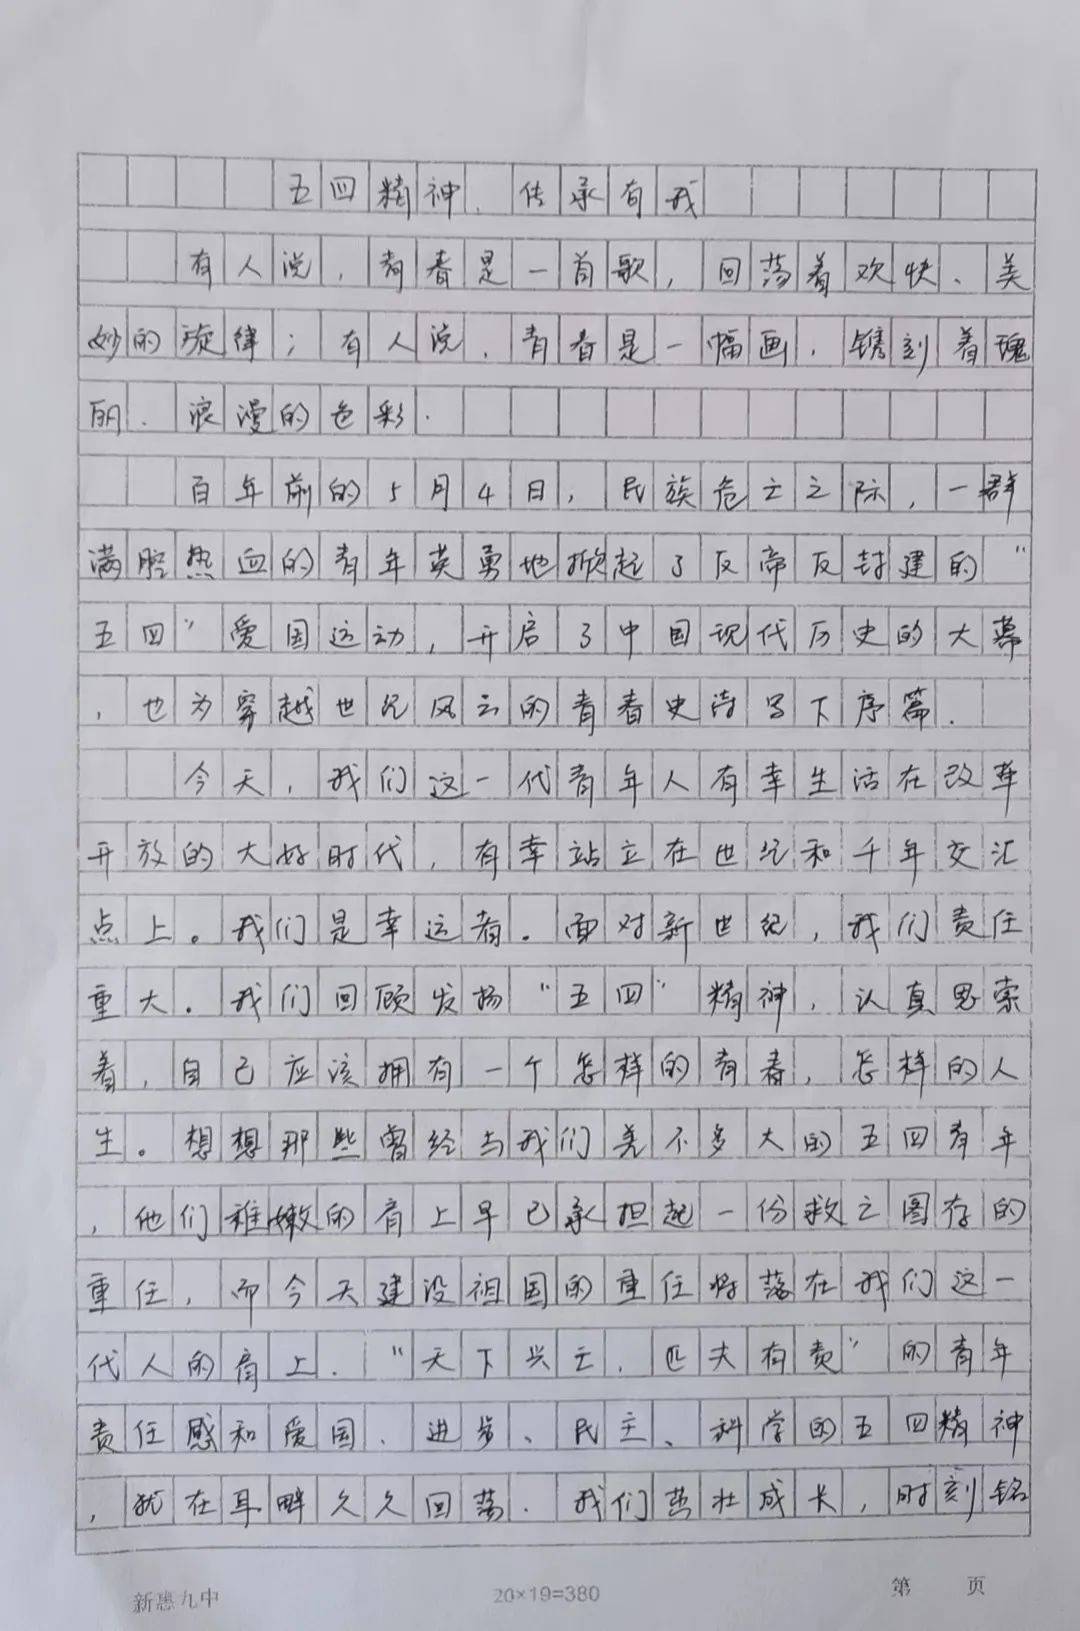 五四精神、传承有我
有人说，青春是一首歌，回荡着欢快、美
妙的旋律；有人说、青春是一幅画，镌刻着瑰
丽、浪漫的色彩.
百年前的5月4日，民族危亡之际，一群
满腔热血的青年英勇地掀起了反帝反封建的“
五四”爱国运动，开启了中国现代历史的大幕
，也为穿越世纪风云的青春史诗写下序篇.
今天，我们这一代青年人有幸生活在改革
开放的大好时代，有幸站立在世纪和千年交汇
点上。我们是幸运者.面对新世纪，我们责任
重大.我们回顾发扬“五四”精神，认真思索
着，自己应该拥有一个怎样的青春，怎样的人
生。想想那些曾经与我们差不多大的五四青年
，他们稚嫩的肩上早已承担起一份救亡图存的
重任，而今天建设祖国的重任将落在我们这一
代人的肩上.“天下兴亡，匹夫有责”的青年
责任感和爱国、进步、民主、科学的五四精神
，犹在耳畔久久回荡.我们茁壮成长，时刻铭
新惠九中 20×19=380 第 页